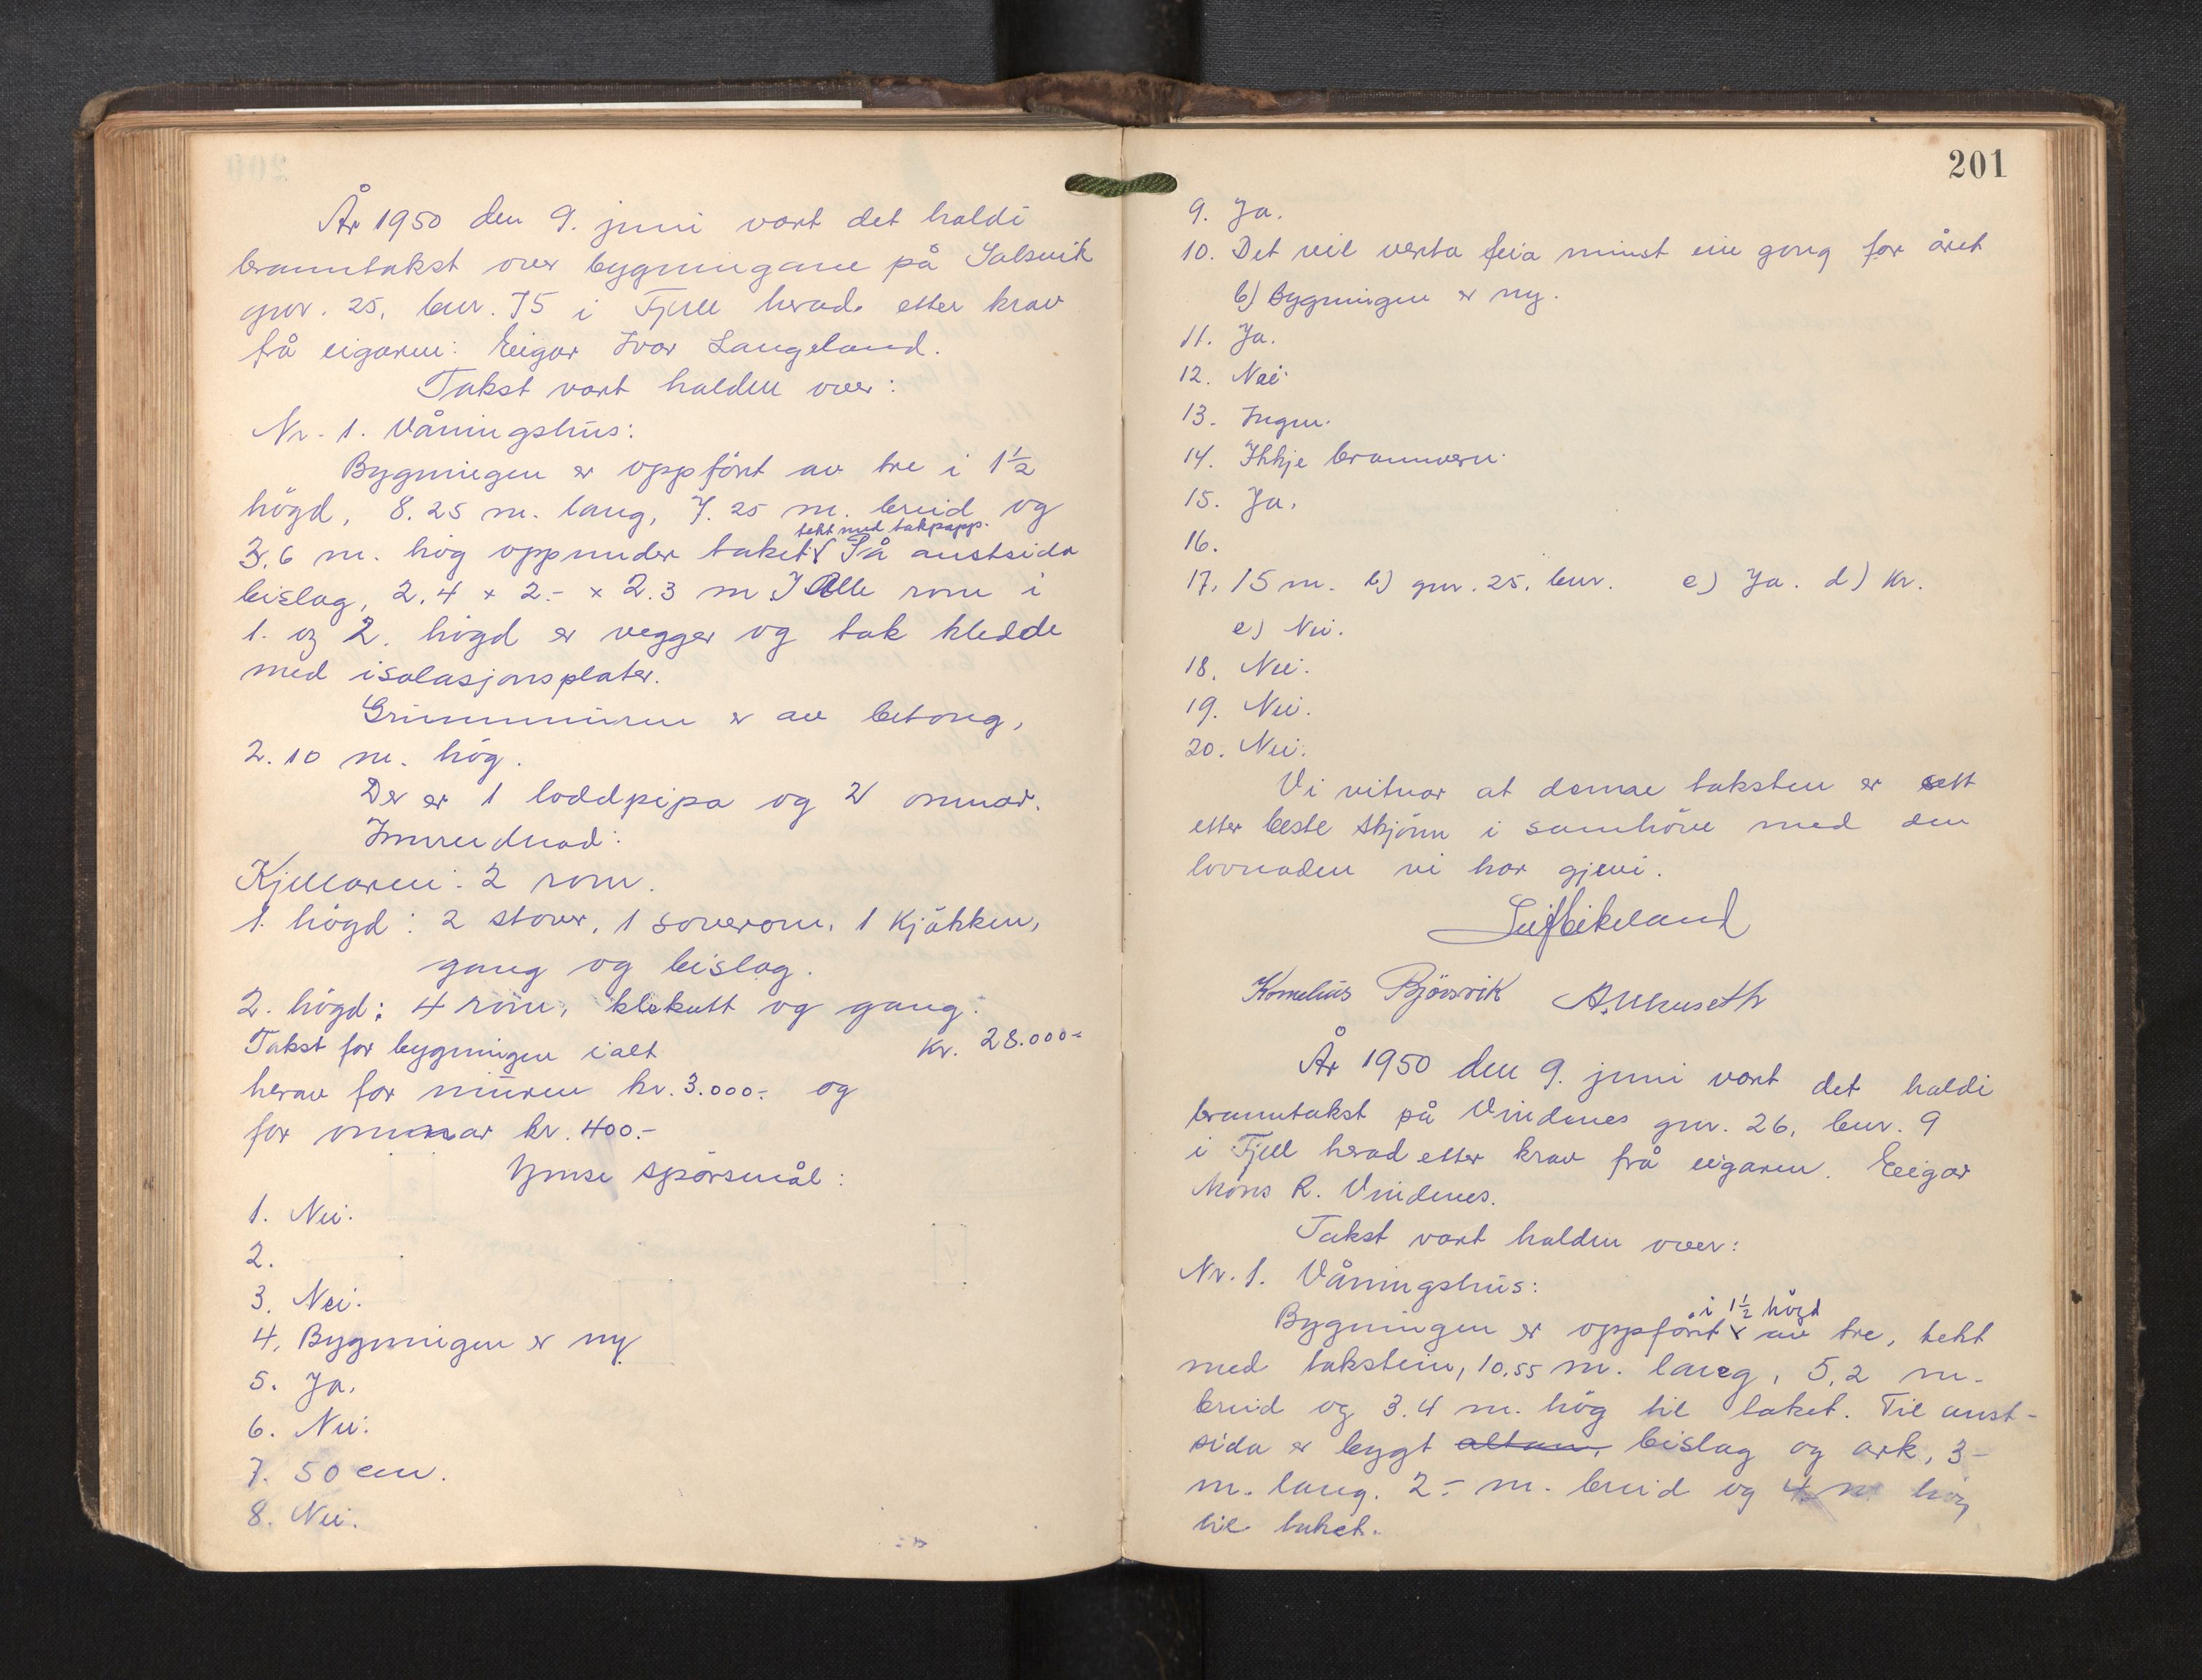 År 1950 den 9. juni vart det haldi
branntakst over bygningane på Salsvik
gnr. 25, bnr. 75 i Fjell herad. etter krav
frå eigaren: Eigar Ivar Langeland.
Takst vart halden over:
Nr. 1. Våningshus:
Bygningen er oppfört av tre i 1½
högd, 8.25 m. lang, 7.25 m. breid og
tekt med takpapp.
3.6 m. hög oppunder taket. På austsida
bislag, 2.4 x 2.- x 2.3 m I Alle rom i
1. og 2. högd er vegger og tak kledde
med isolasjonsplater.
Grunnmuren er av betong,
2.10 m. hög.
Der er 1 loddpipa og 2 omnar.
Innreidnad:
Kjellaren: 2 rom.
1. högd: 2 stover, 1 soverom, 1 kjökken,
gang og bislag.
2. högd: 4 rom, klekott og gang.
Takst for bygningen ialt kr. 28.000-
herav for muren kr. 3.000.- og
for omnar kr. 400.-
Ymse spörsmål:
1. Nei.
2.
3. Nei.
4. Bygningen er ny
5. Ja.
6. Nei.
7. 50 cm.
8. Nei.
201
9. Ja.
10. Det vil verta feia minst ein gong for året
b) Bygningen er ny.
11. Ja.
12. Nei.
13. Ingen.
14. Ikkje brannvern.
15. Ja.
16.
17. 15 m. b) gnr. 25, bnr. c) Ja. d) Kr.
e) Nei.
18. Nei.
19. Nei.
20. Nei.
Vi vitnar at denne taksten er sett
etter beste skjönn i samhöve med den
lovnaden vi har gjevi.
Leif Eikeland
Kornelius Björsvik A. Museth
År 1950 den 9. juni vart det haldi
branntakst på Vindenes gnr. 26, bnr. 9
i Fjell herad etter krav frå eigaren. Eeigar
Mons R. Vindenes.
Takst vart halden over:
Nr. 1. Våningshus:
i 1½ högd
Bygningen er oppfört av tre, tekt
med takstein, 10.55 m. lang, 5.2 m.
breid og 3.4 m. hög til taket. Til aust-
sida er bygt altan, bislag og ark, 3-
m. lang. 2.- m. breid og 4 m hög
til taket.